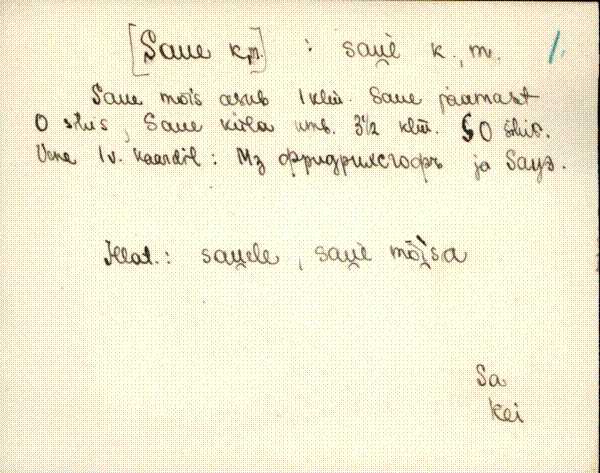 [Saue k., m.] : sau̯è k., m. 1.
Saue mõis asub 1 klm. Saue jaamast
O shus, Saue küla umb. 3½ klm. SO shis.
Vene 1 v. kaardil : Мз Фридрихсгофъ ja Sауэ.
Allat.: sau̯ele, sau̯è mõi̯sa
Sa
Kei